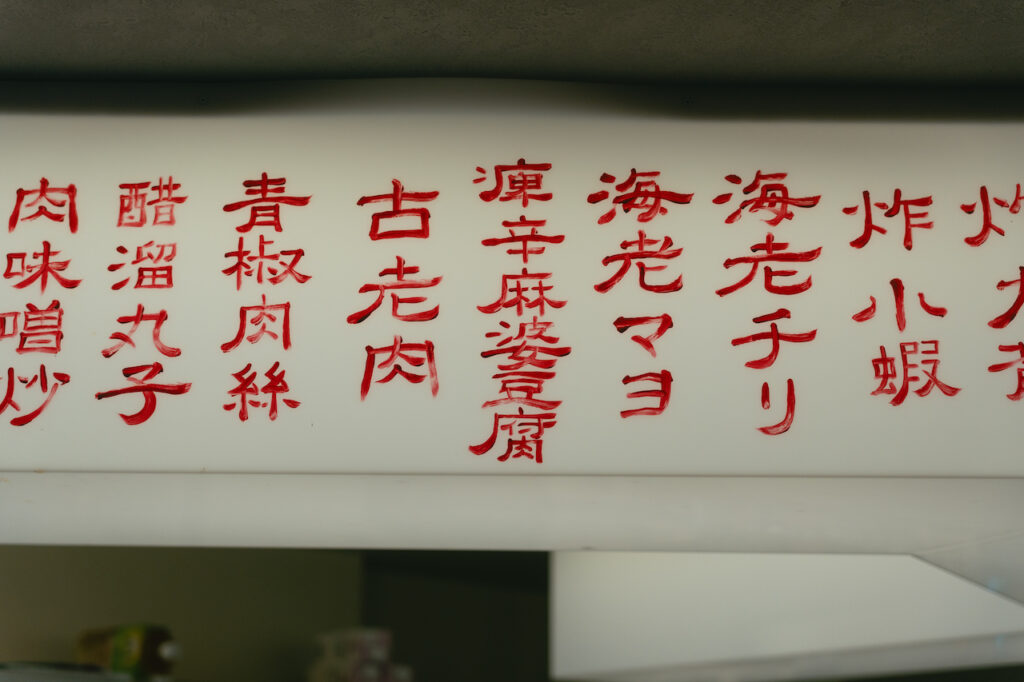 炸小蝦
海老チリ
海老マヨ
痺辛麻婆豆腐
古老肉
青椒肉絲
醋溜丸子
肉味噌炒